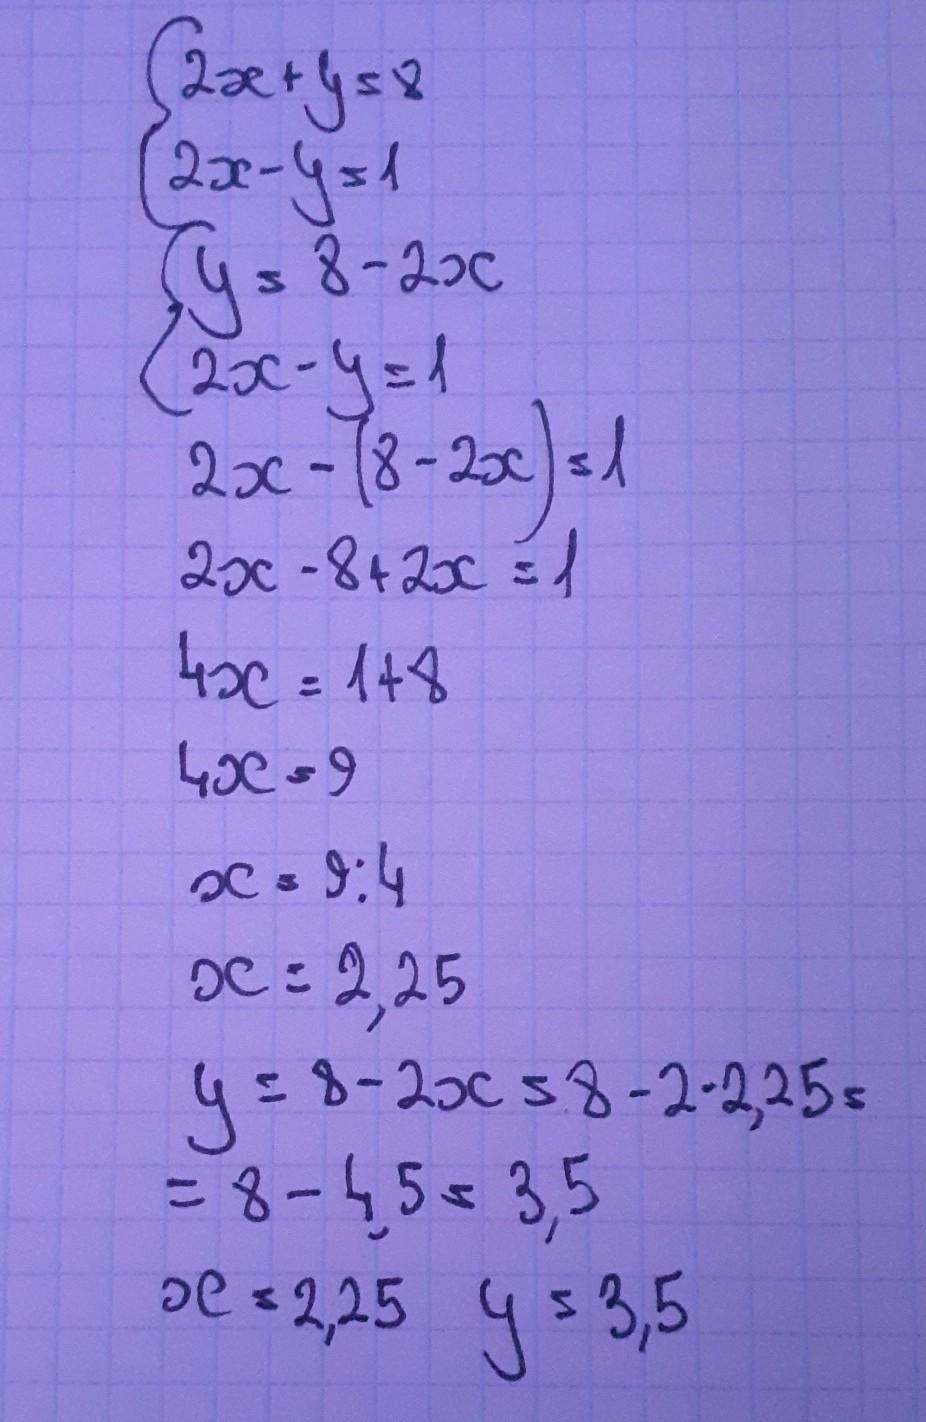 {2x+y=8
{2x-y=1
{y=8-2x
{2x-y=1
2x-(8-2x)=1
2x-8+2x=1
4x=1+8
4x=9
x=9:4
x=2,25
y=8-2x=8-2·2,25=
=8-4,5=3,5
x=2,25 y=3,5